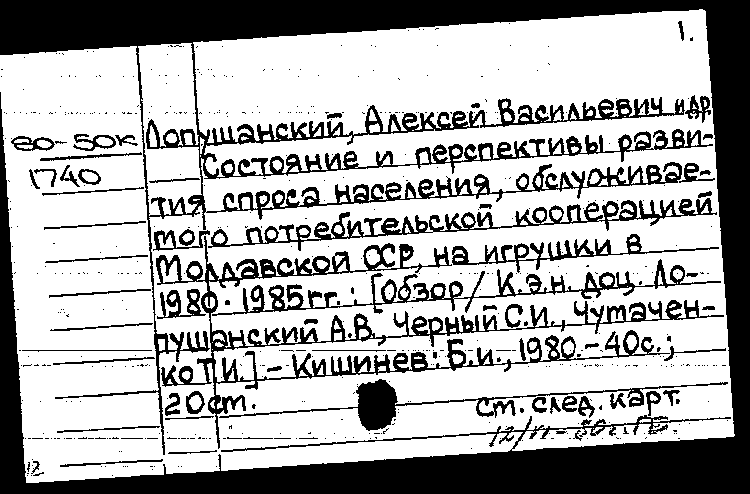 1.
80-50К Лопушанский, Алексей Васильевич и др.
1740 Состояние и перспективы разви-
тия спроса населения, обслуживае-
мого потребительской кооперацией
Молдавской ССР, на игрушки в
1980-1985 гг.: [Обзор/ К.э.н. доц. Ло-
пушанский А.В., Черный С.И., Чутачен-
ко Т.И.].- Кишинев: Б.и., 1980.-40с.;
20см.
См. след. карт.
12